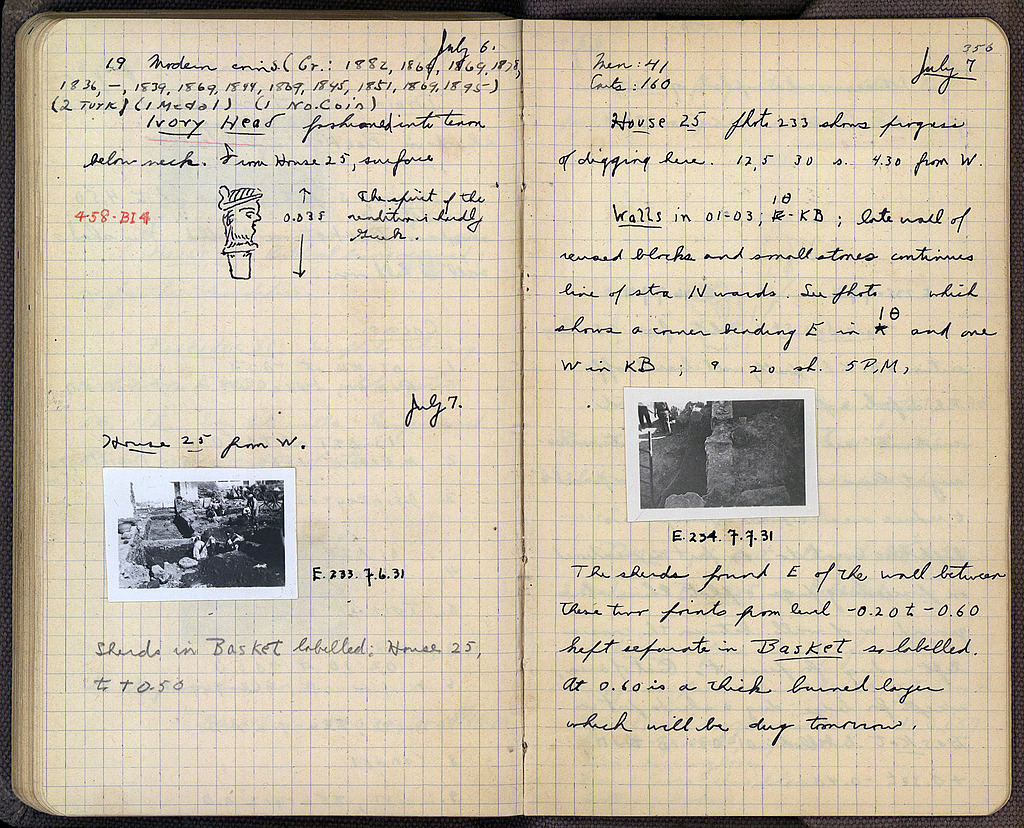 July 6.
19 Modern coins (Gr.: 1882, 1869, 1869, 1878,
1836, –, 1839, 1869, 1844, 1869, 1845, 1851, 1869, 1895–)
(2 Turk) (1 Medal) (1 No. Coin)
Ivory Head fashioned into tenon
below neck. From House 25, surface
458-BI4
0.035
The spirit of the
rendition is hardly
Greek.
July 7.
House 25 from W.
E.233. 7.6.31
Sherds in Basket labelled: House 25,
to +0.50
356
July 7
Men: 41
Carts: 160
House 25 photo 233 shows progress
of digging here. 12,5 30 s. 4.30 from W.
Walls in 01-03; ΙΘ-KB; late wall of
reused blocks and small stones continues
line of stoa N wards. See photo which
shows a corner bending E in ΙΘ and one
W in KB; 9 20 sh. 5 P.M.,
E.234. 7.7.31
The sherds found E of the wall between
these two points from level -0.20 to -0.60
kept separate in Basket so labelled.
At 0.60 is a thick burned layer
which will be dug tomorrow.